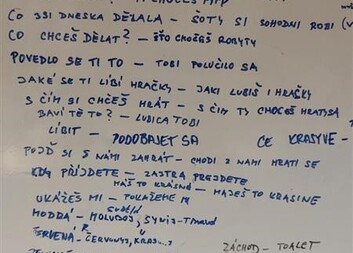 CO JSI DNESKA DĚLALA – ŠOTY SI SOHODNI ROBI
CO CHCEŠ DĚLAT? – ŠTO CHOČEŠ ROBYTY
POVEDLO SE TI TO – TOBI POLUČILO SA
JAKÉ SE TI LÍBÍ HRAČKY – JAKI LUBIŠ I HRAČKY
S ČÍM SI CHCEŠ HRÁT – S ČIM TY CHOCEŠ HRATYSA
BAVÍ TĚ TO? – LUBICA TOBI
LÍBIT – PODOBAJET SA CE KRASYVE –
POJĎ SI S NÁMI ZAHRÁT – CHODI Z NAMI HRATI SE
KDY PŘIJDETE – ZAJTRA PREJDETE
MÁŠ TO KRÁSNÉ – MAJEŠ TO KRASINE
UKÁŽEŠ MI – POKAŽEME
MODRÁ – HOLUBOJ,
ČERVENÁ – ČERVONYJ,
ZÁCHOD – TOALET